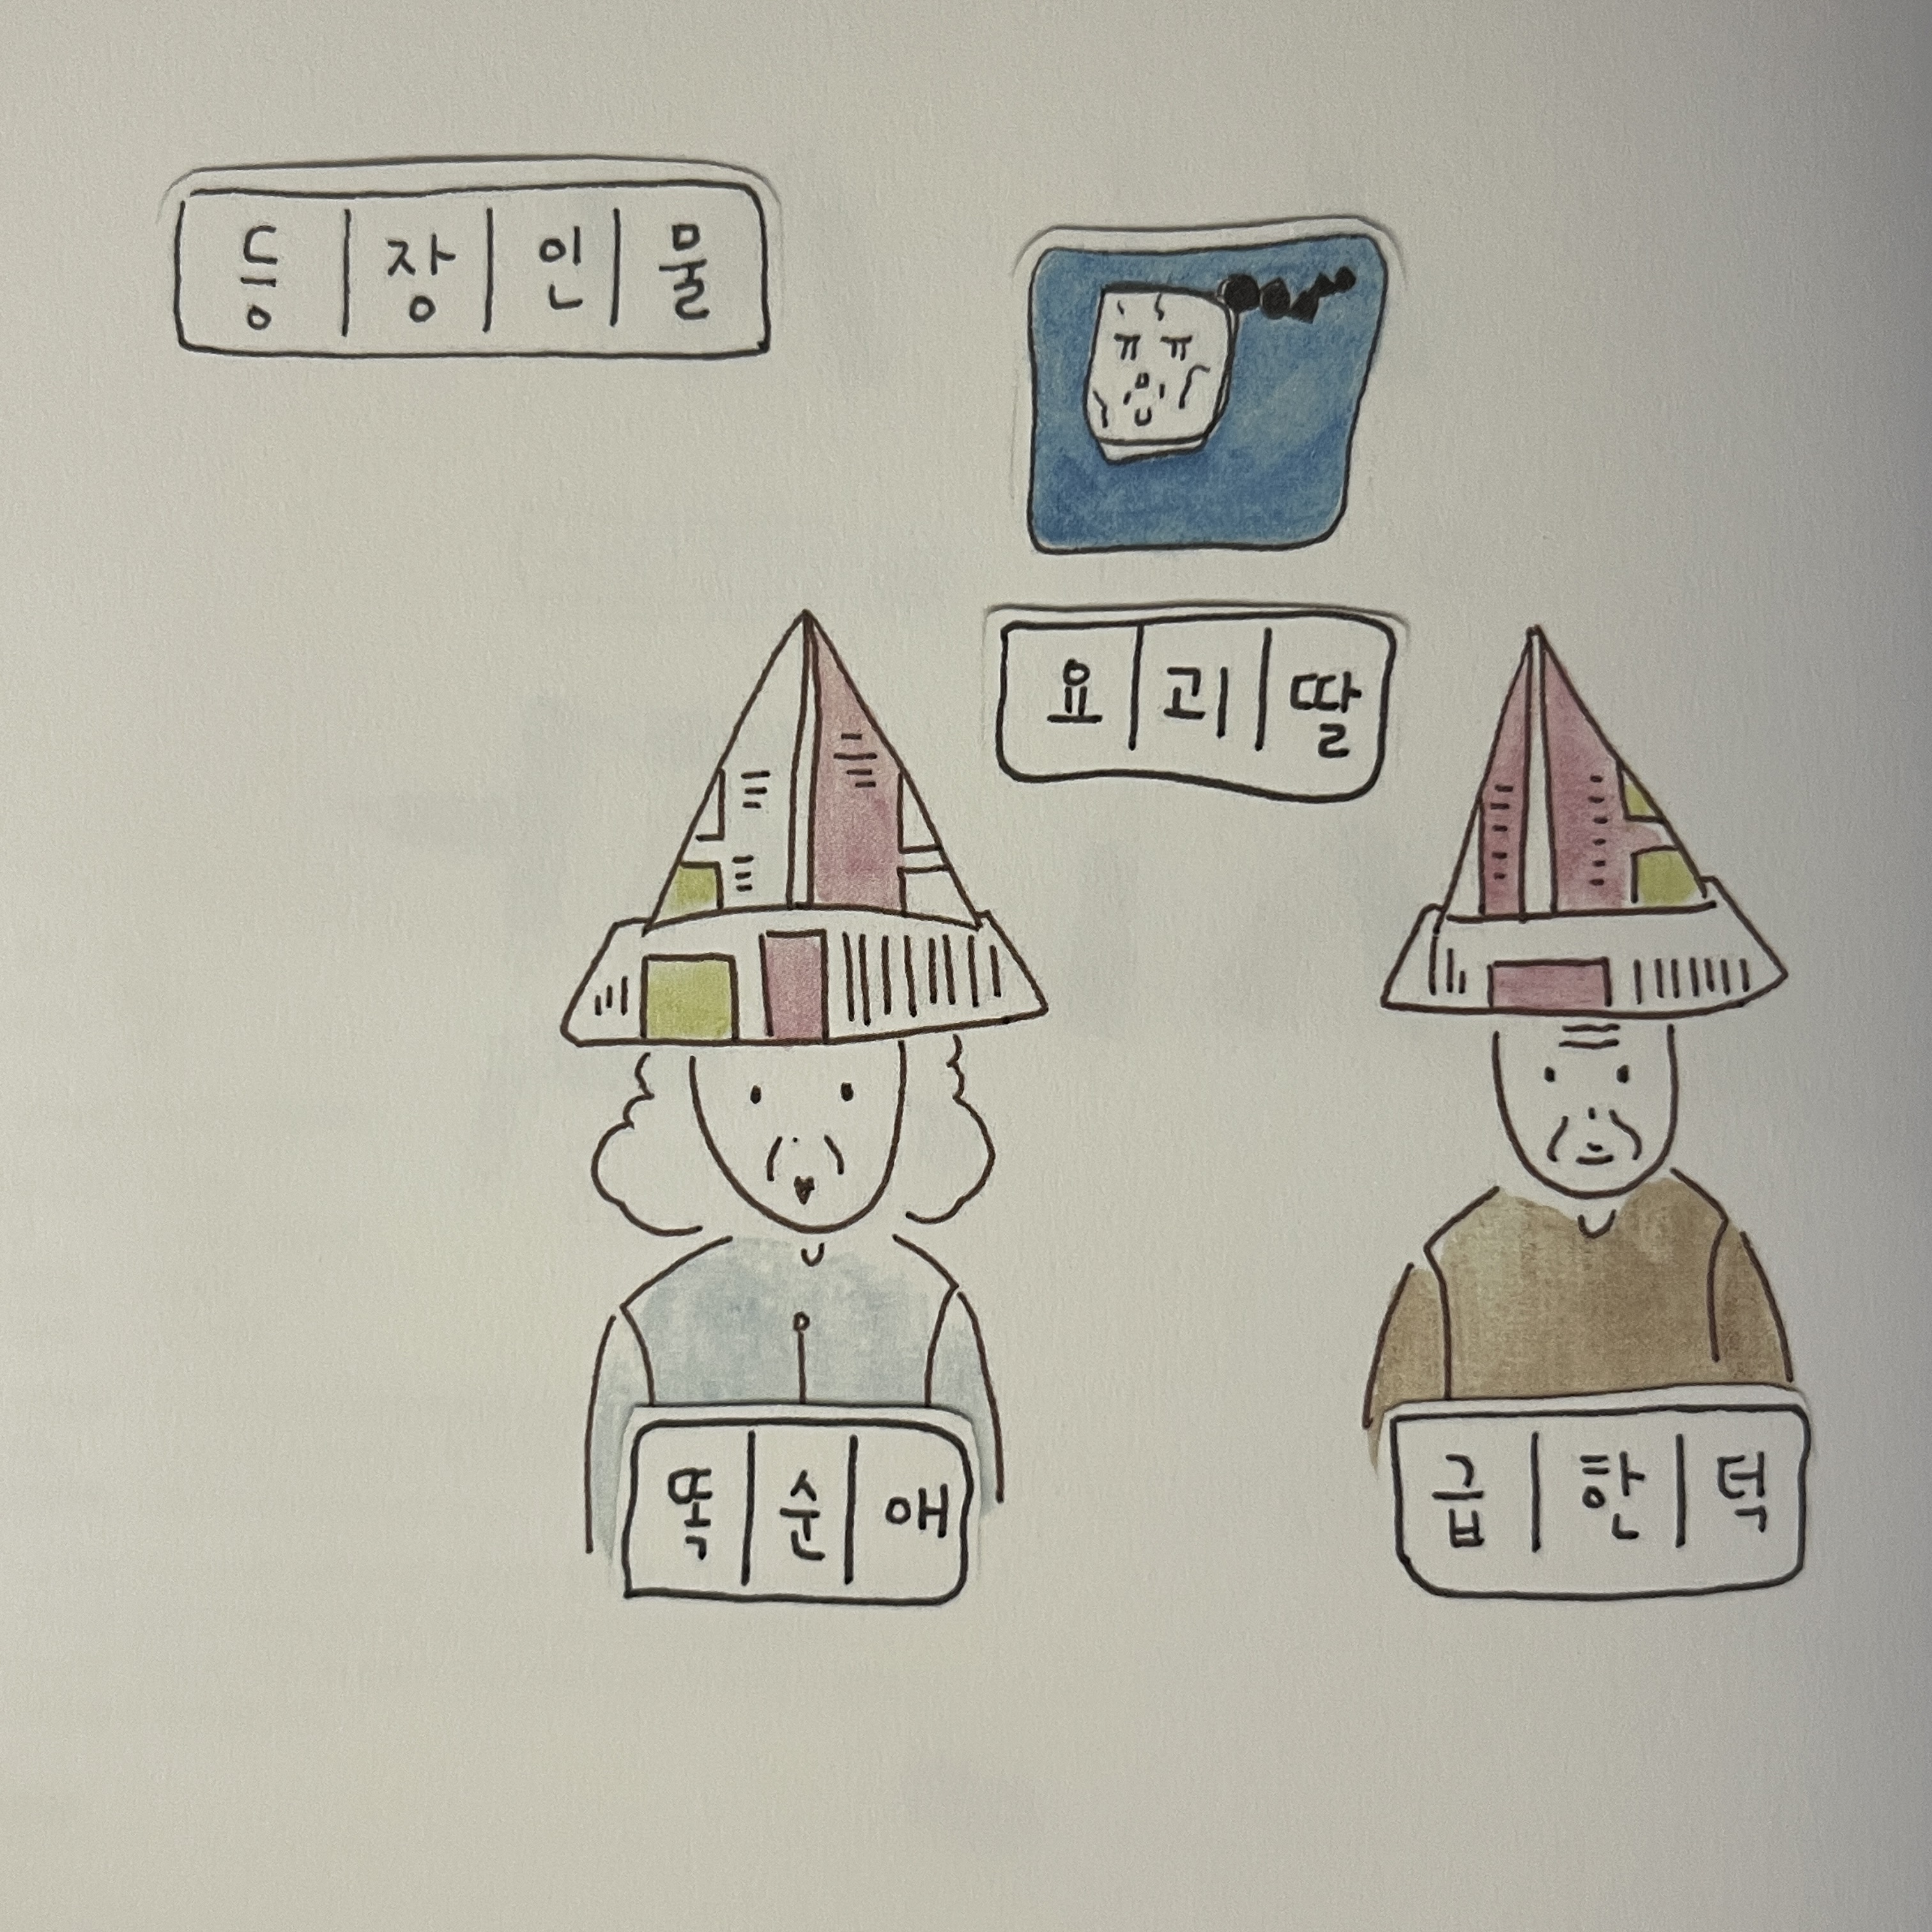 등장인물
요괴딸
똑순애
급한덕